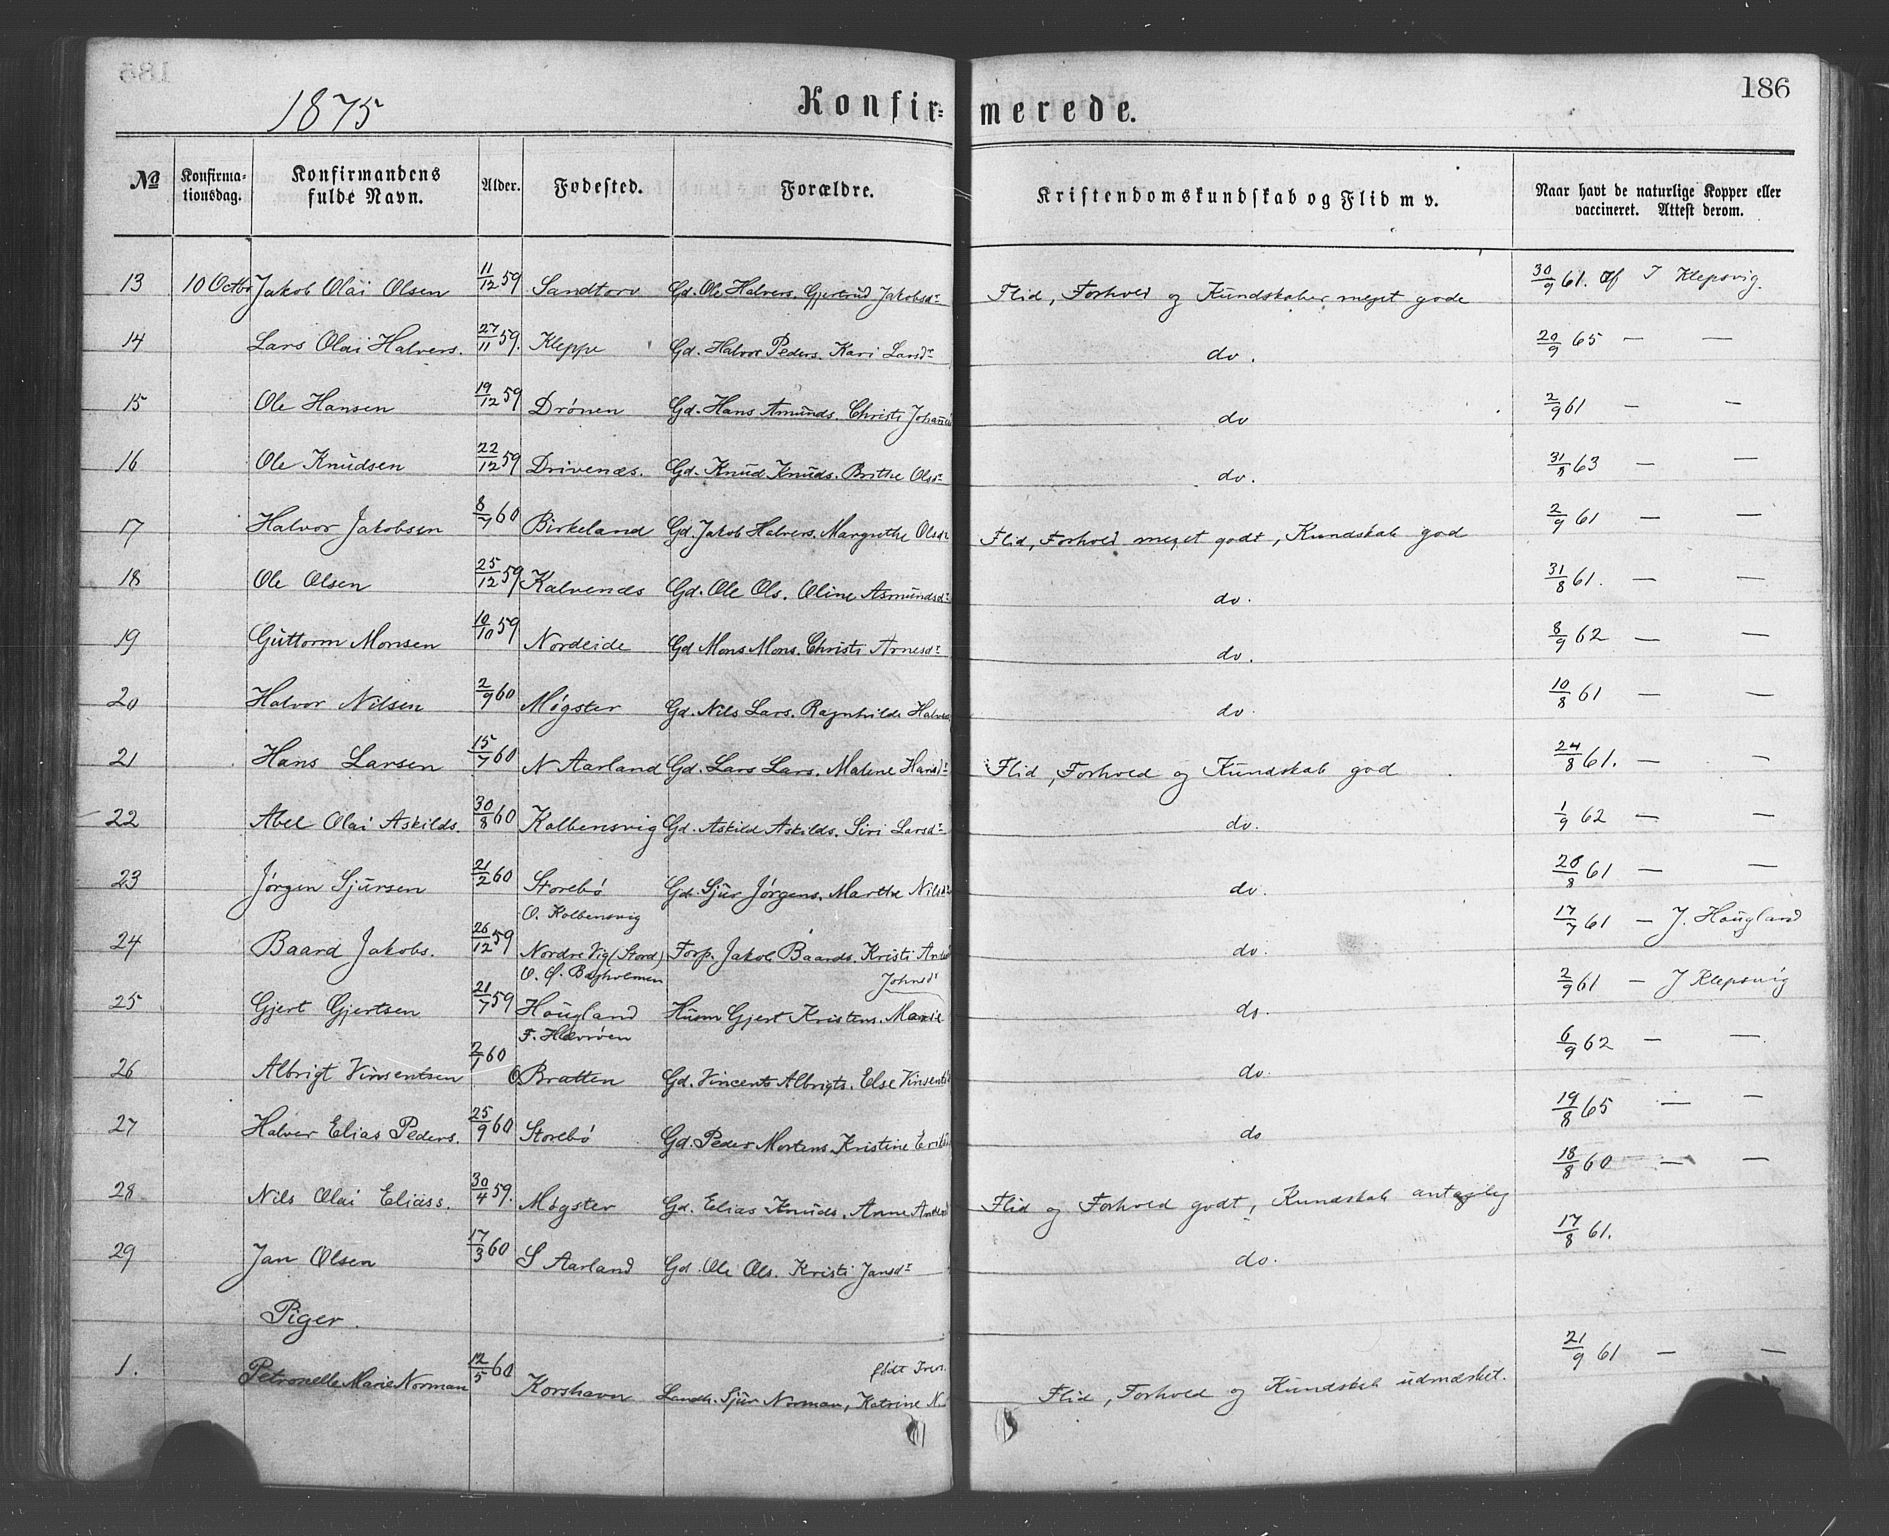 186
1875
Konfir= merede.
No Konfirma-tionsdag. Konfirmandens fulde Navn. Alder. Fødested. Forældre. Kristendomskundskab og Flid m v. Naar havt de naturlige Kopper eller vaccineret. Attest derom.
13 10 Octbr Jakob Olai Olsen 11/12 59 Sandtorv Gd. Ole Halvors. Gjertrud Jakobsdr Flid, Forhold og Kundskaber meget gode 30/9 61. af J Klepsvig.
14 Lars Olai Halvors. 27/11 59. Kleppe Gd. Halvor Peders. Kari Larsdr do. 20/9 65 — —
15 Ole Hansen 19/12 59 Drönen Gd. Hans Amunds. Christi do 2/9 61 — —
16 Ole Knudsen 22/12 59 Drivenæs. Gd. Knud Knuds. Brithe Olsdr do. 31/8 63 — —
17 Halvor Jakobsen 8/7 60 Birkeland Gd. Jakob Halvors. Margrethe Olsdr Flid, Forhold meget godt, Kundskab god 2/9 61 — —
18 Ole Olsen 25/12 59 Kalvenæs Gd. Ole Ols. Oline Asmundsdr do. 31/8 61. — —
19 Guttorm Monsen 10/10 59 Nordeide Gd Mons Mons. Christi Arnesdr do. 8/9 62 — —
20 Halvor Nilsen 2/9 60 Møgster Gd. Nils Lars. Ragnhilde do. 10/8 61 — —
21 Hans Larsen 15/7 60 N Aarland Gd. Lars Lars. Malene Hansdr Flid, Forhold og Kundskab god 24/8 61. — —
22 Abel Olai Askilds. 30/8 60 Kolbensvig Gd. Askild Askilds. Siri Larsdr do. 1/9 62 — —
23 Jørgen Sjursen 21/2 60 Storebø Gd. Sjur Jørgens. Marthe Nilsdr do. 20/8 61 — —
O. Kolbensvig
24 Baard Jakobs. 26/12 59 Nordre Vig (Stord) Forp. Jakob Baards. Kristi do. 17/7 61 — J. Hougland
O. Ø. Bagholmen Johnsdr
25 Gjert Gjertsen 21/7 59 Hougland Husm Gjert Kristens. Marie do. 2/9 61 — J Klepsvig
F. Hevrøen
26 Albrigt Vinsentsen 2/1 60 O. Bratten Gd. Vincents Albrigts. Else do. 6/9 62 — —
27 Halvor Elias Peders. 25/9 60 Storebø Gd. Peder Mortens. Kristine do 19/8 65 — —
28 Nils Olai Eliass. 30/4 59. Møgster Gd. Elias Knuds. Anne Flid og Forhold godt, Kundskab antagelig 18/8 60 — —
29 Jan Olsen 17/3 60 S Aarland Gd. Ole Ols. Kristi Jansdr do. 17/8 61.
Piger.
født
1. Petronelle Marie Norman 12/5 60 Korshavn Landh. Sjur Norman, Katrine N. Flid, Forhold og Kundskab udmærket. 21/9 61 — —